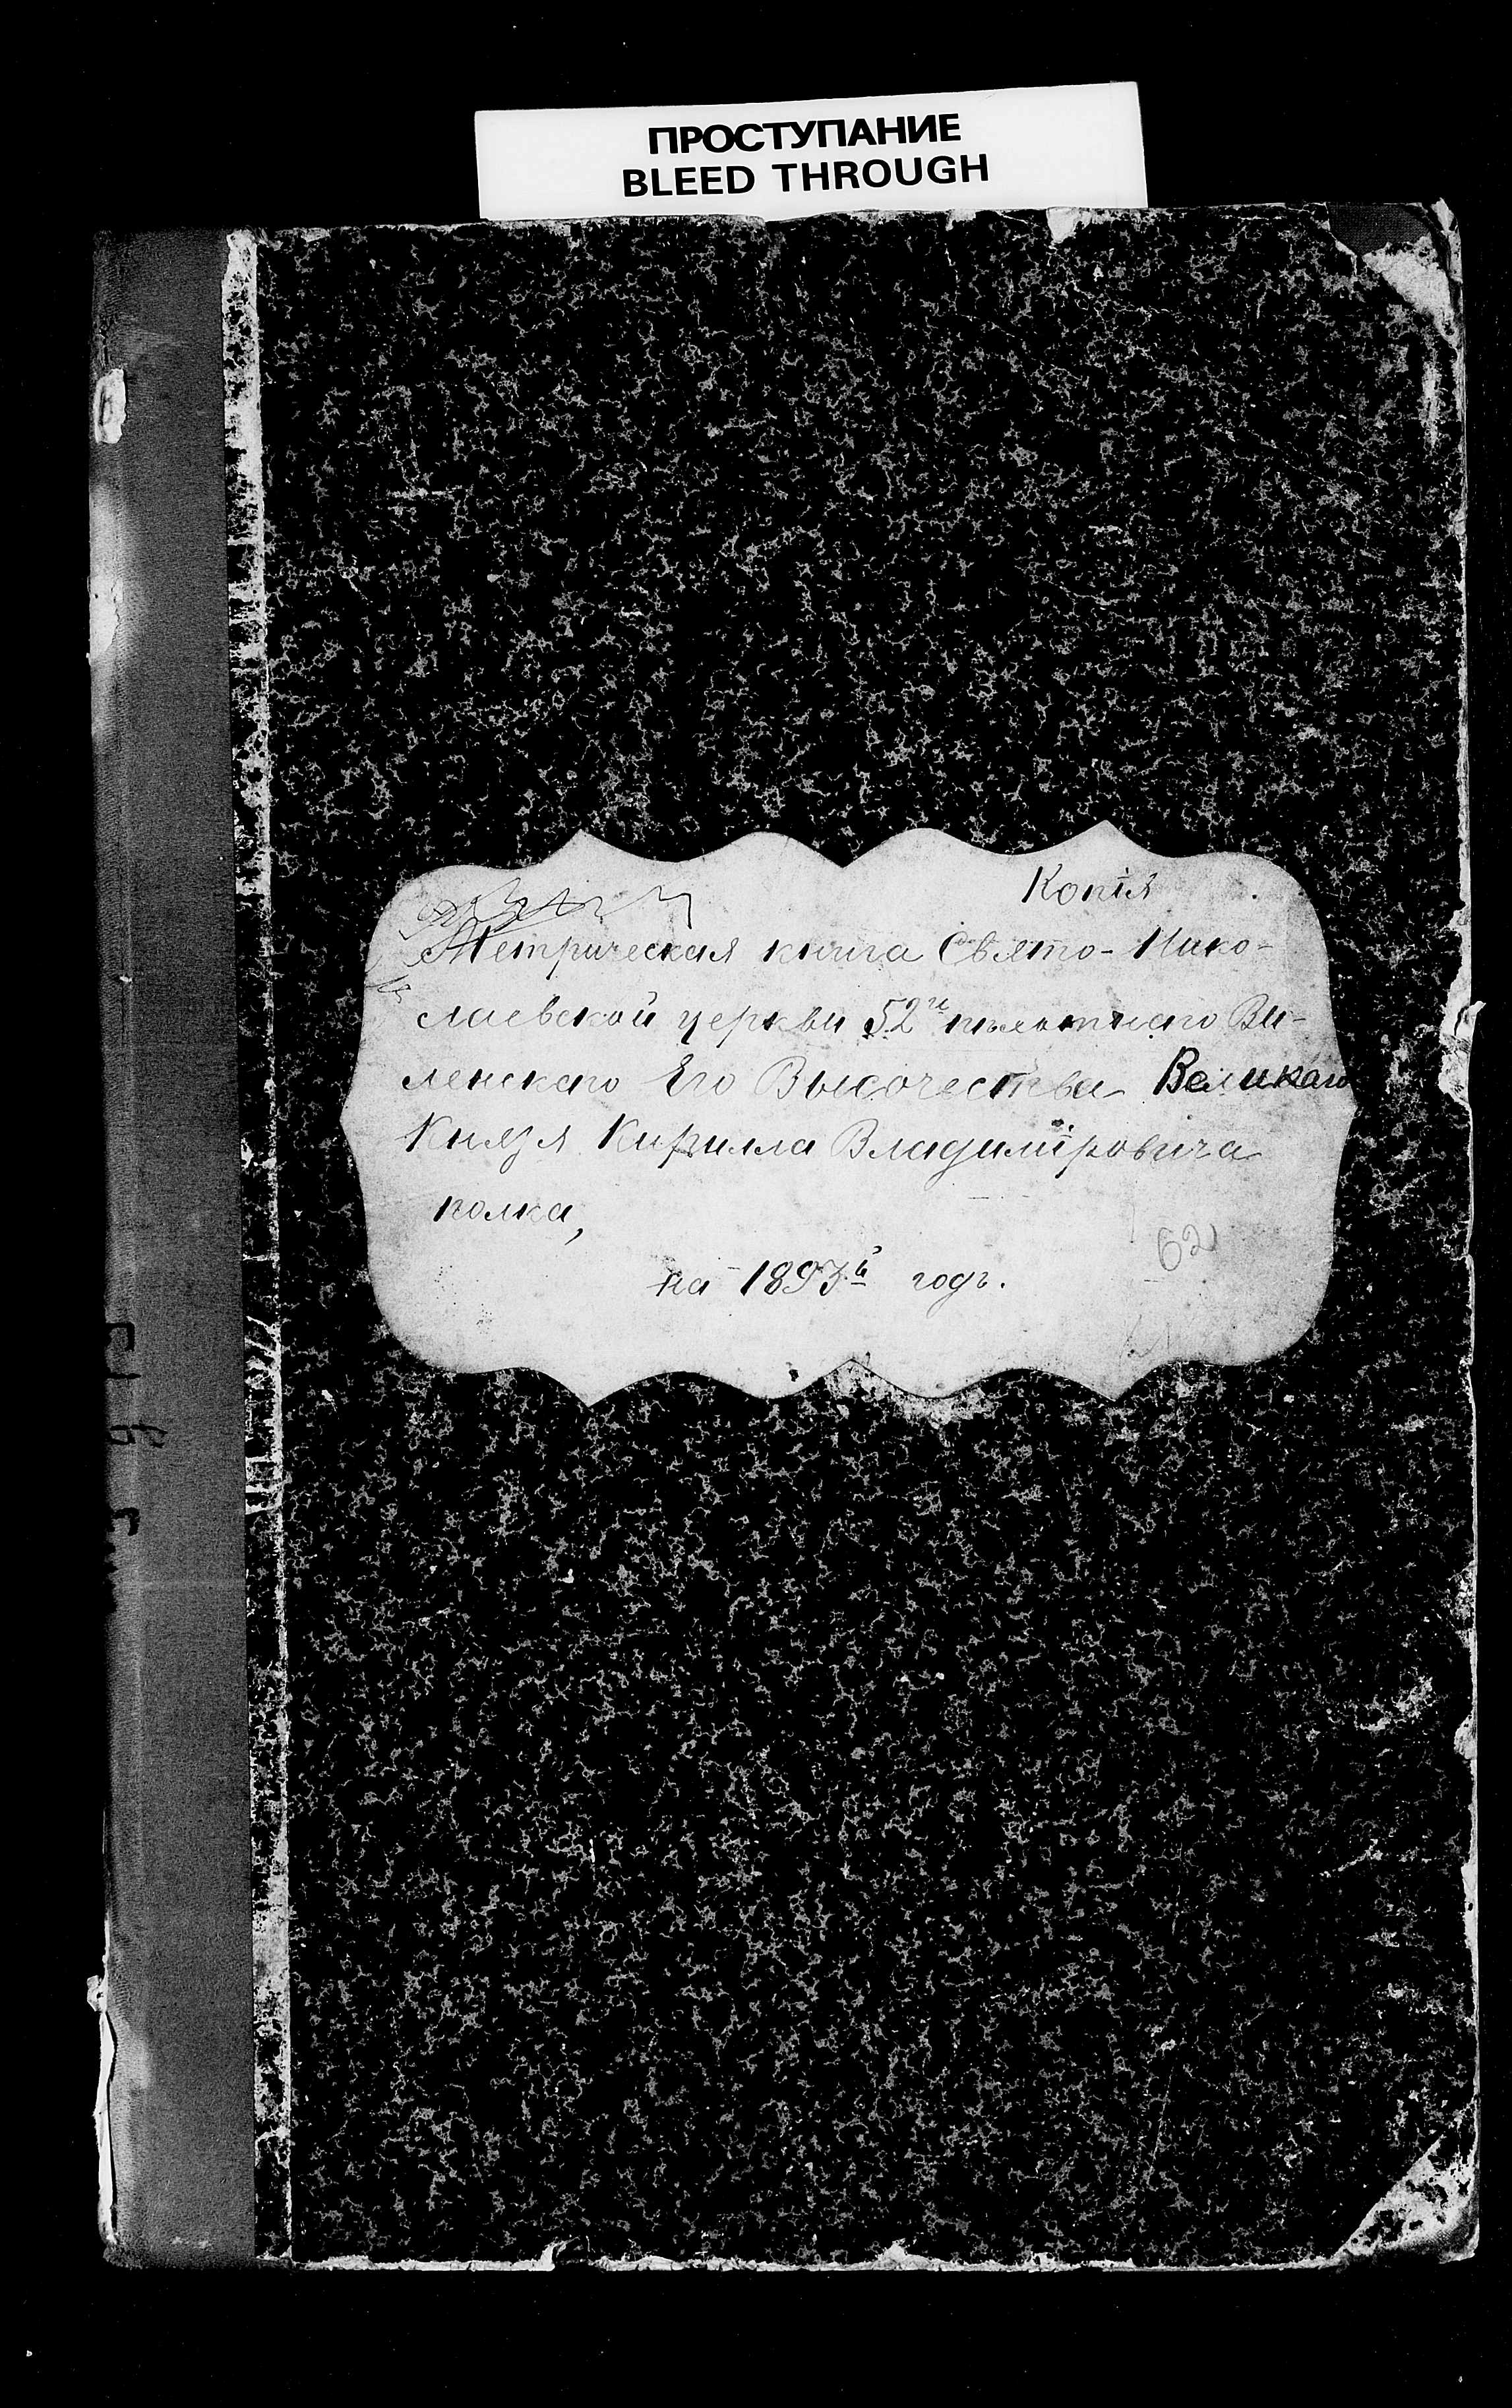 ПРОСТУПАНИЕ
BLEED THROUGH
Копія
Метрическая книга Свято-Нико-
лаевской церкви 52го пѣхотнаго Ви-
ленскаго Его Высочества Великаго
Князя Кирилла Владиміровича
полка,
62
на 1893й годъ.